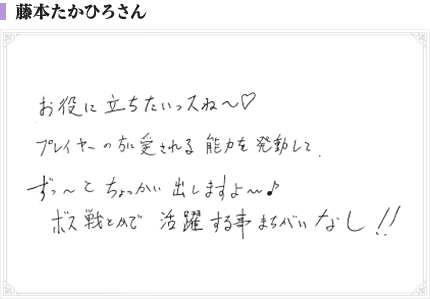 藤本たかひろさん
お役に立ちたいっスね～♡
プレイヤーの方に愛される能力を発動して、
ずっ～とちょっかい出しますよ～♪
ボス戦とかで活躍する事まちがいなし!!